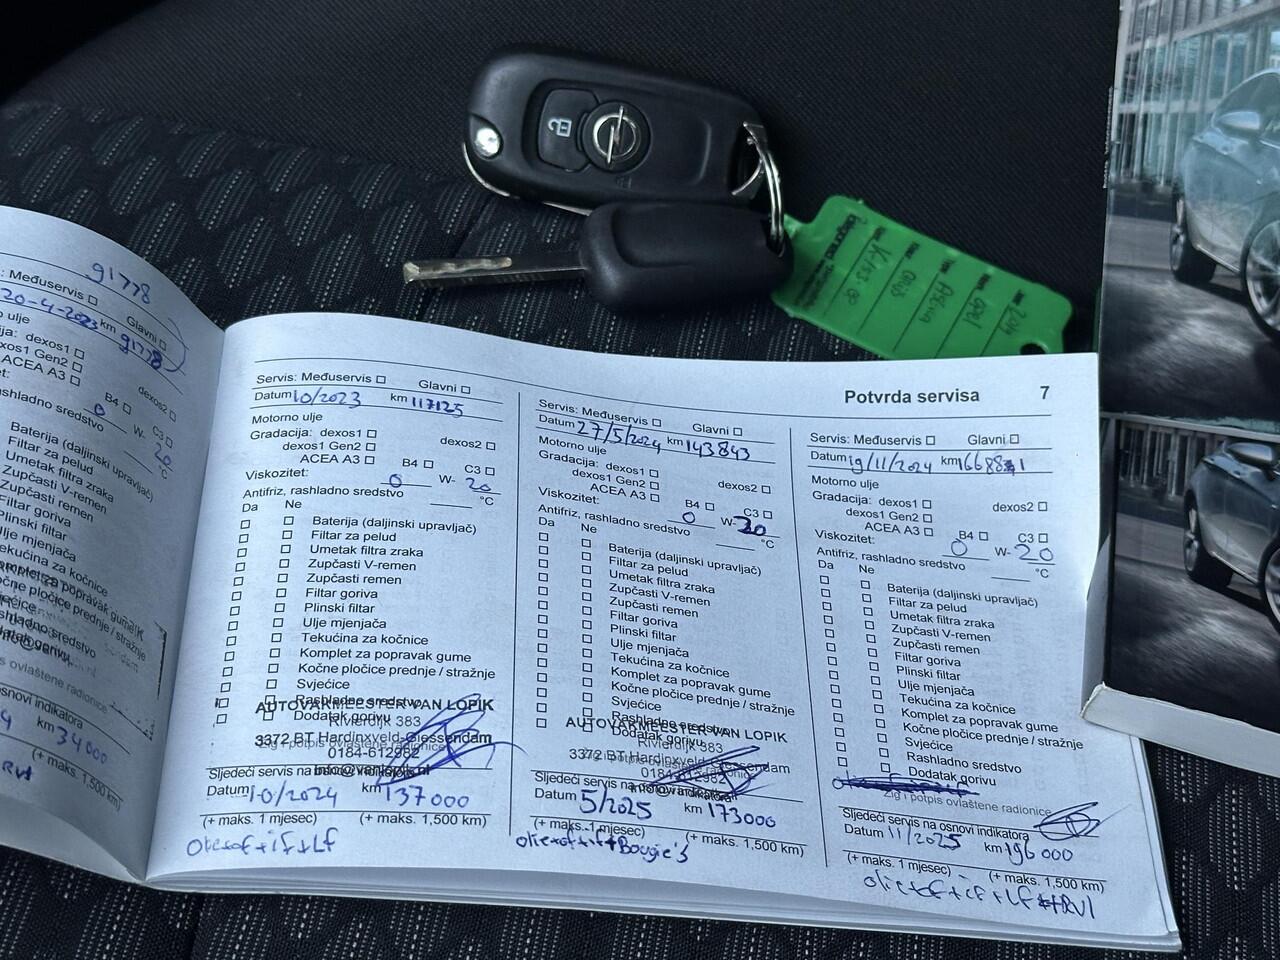 91778
Međuservis Glavni
20-4-2023 km 91778
dexos1
dexos1 Gen2 dexos2
ACEA A3 B4 C3
0 W- 20
rashladno sredstvo °C
Baterija (daljinski upravljač)
Filtar za pelud
Umetak filtra zraka
Zupčasti V-remen
Zupčasti remen
Filtar goriva
Plinski filtar
Ulje mjenjača
Tekućina za kočnice
Komplet za popravak gume
pločice prednje / stražnje
km 34000
(+ maks. 1,500 km)
Potvrda servisa 7
Servis: Međuservis Glavni
Datum 10/2023 km 117125
Motorno ulje
Gradacija: dexos1
dexos1 Gen2 dexos2
ACEA A3 B4 C3
Viskozitet: 0 W- 20
Antifriz, rashladno sredstvo °C
Da Ne
Baterija (daljinski upravljač)
Filtar za pelud
Umetak filtra zraka
Zupčasti V-remen
Zupčasti remen
Filtar goriva
Plinski filtar
Ulje mjenjača
Tekućina za kočnice
Komplet za popravak gume
Kočne pločice prednje / stražnje
Svjećice
Rashladno sredstvo
AUTOVAKMEESTER VAN LOPIK
Dodatak gorivu
Rivierdijk 383
3372 BT Hardinxveld-Giessendam
Žig i potpis ovlaštene radionice
0184-612952
Sljedeći servis na
Datum 10/2024 km 137000
(+ maks. 1 mjesec) (+ maks. 1,500 km)
Servis: Međuservis Glavni
Datum 27/5/2024 km 143843
Motorno ulje
Gradacija: dexos1
dexos1 Gen2 dexos2
ACEA A3 B4 C3
Viskozitet: 0 W- 20
Antifriz, rashladno sredstvo °C
Da Ne
Baterija (daljinski upravljač)
Filtar za pelud
Umetak filtra zraka
Zupčasti V-remen
Zupčasti remen
Filtar goriva
Plinski filtar
Ulje mjenjača
Tekućina za kočnice
Komplet za popravak gume
Kočne pločice prednje / stražnje
Svjećice
Rashladno sredstvo
AUTOVAKMEESTER VAN LOPIK
Dodatak gorivu
Rivierdijk 383
3372 BT Hardinxveld-Giessendam
Sljedeći servis na osnovi indikatora
Datum 5/2025 km 173000
(+ maks. 1 mjesec) (+ maks. 1,500 km)
olie+of+if+Bougie's
Servis: Međuservis Glavni
Datum 19/11/2024 km
Motorno ulje
Gradacija: dexos1
dexos1 Gen2 dexos2
ACEA A3 B4 C3
Viskozitet: 0 W- 20
Antifriz, rashladno sredstvo °C
Da Ne
Baterija (daljinski upravljač)
Filtar za pelud
Umetak filtra zraka
Zupčasti V-remen
Zupčasti remen
Filtar goriva
Plinski filtar
Ulje mjenjača
Tekućina za kočnice
Komplet za popravak gume
Kočne pločice prednje / stražnje
Svjećice
Rashladno sredstvo
Dodatak gorivu
Žig i potpis ovlaštene radionice
Sljedeći servis na osnovi indikatora
Datum 11/2025 km 196000
(+ maks. 1 mjesec) (+ maks. 1,500 km)